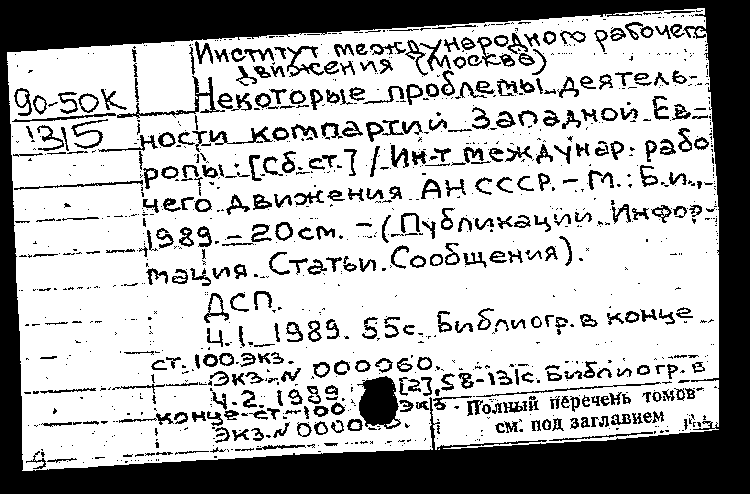 Институт международного рабочего
движения (Москва)
90-50К
1315
Некоторые проблемы деятель-
ности компартий Западной Ев-
ропы: [Сб. ст.] / Ин-т междунар. рабо
чего движения АН СССР. - М.: Б.и.,
1989. - 20см. - (Публикации. Инфор-
мация. Статьи. Сообщения).
ДСП.
Ч.1. 1989. 55с. Библиогр. в конце
ст. 100.экз.
Экз. N 000060.
Ч.2. 1989. [2], 58-131с. Библиогр. в
конце ст. - 100 экз.
Экз. N
Полный перечень томов
см. под заглавием
9